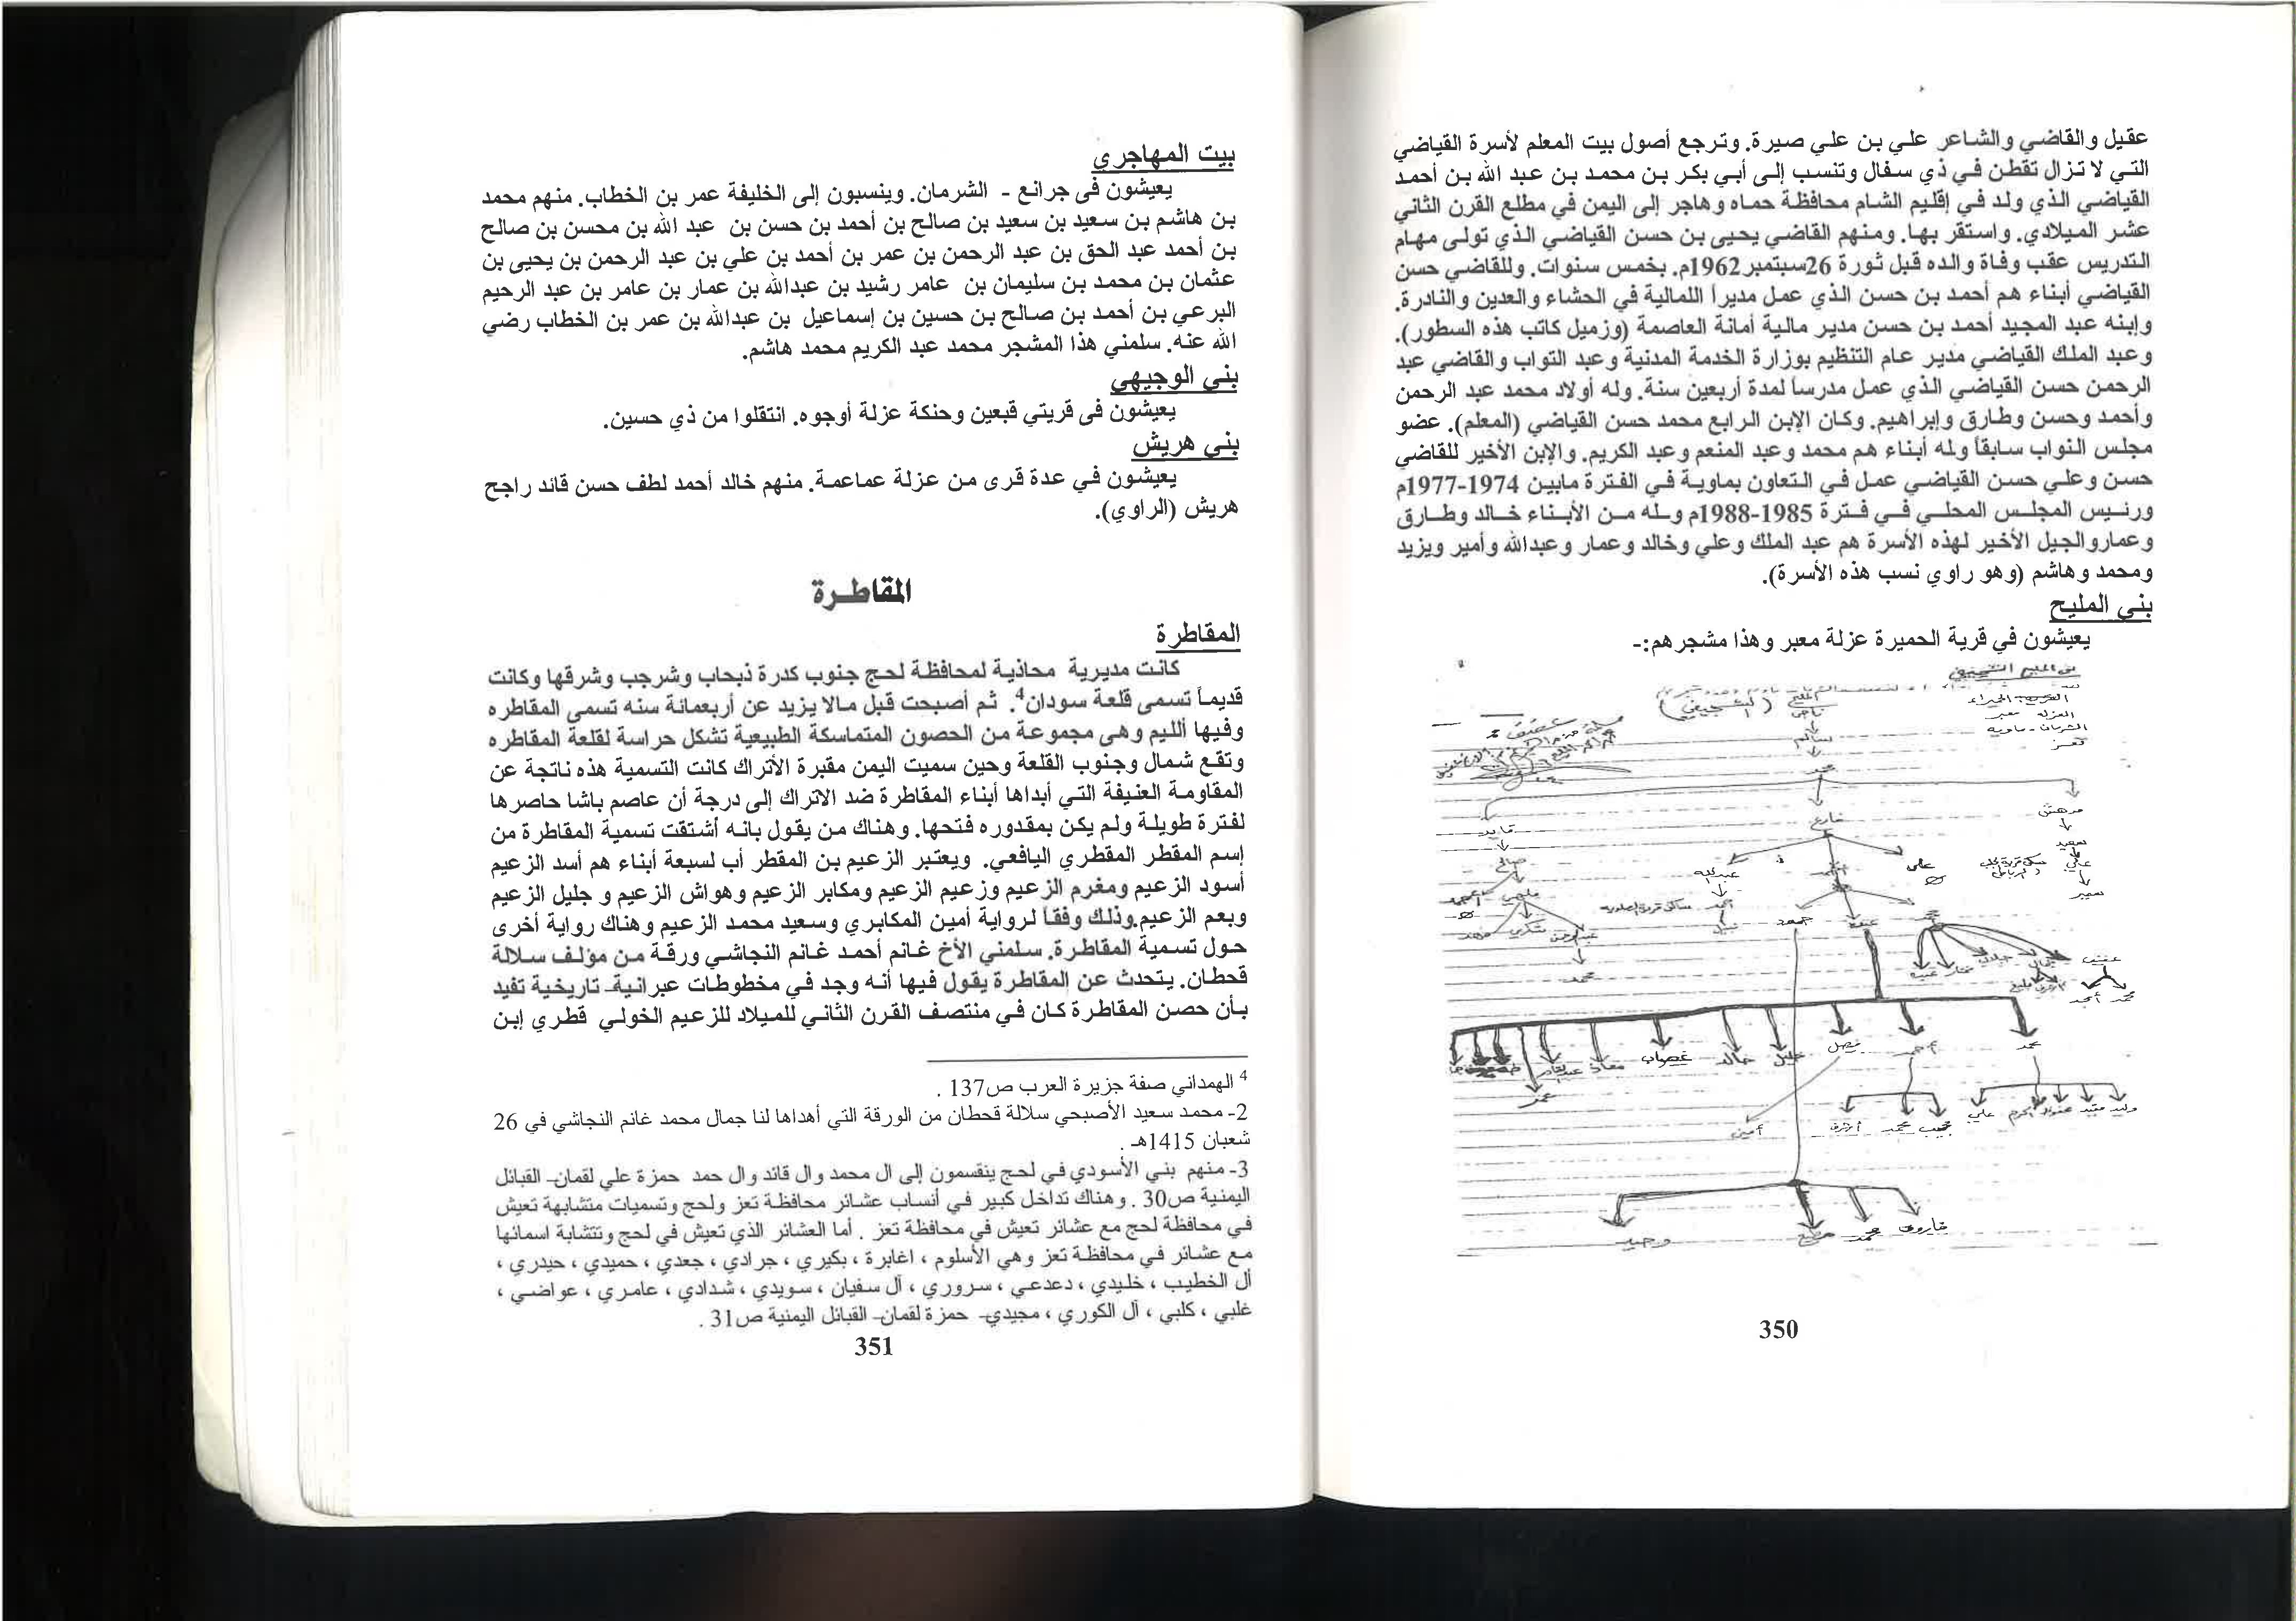 عقيل والقاضي والشاعر علي بن علي صيرة. وترجع أصول بيت المعلم لأسرة القياضي
التي لا تزال تقطن في ذي سفال وتنسب إلى أبي بكر بن محمد بن عبد الله بن أحمد
القياضي الذي ولد في إقليم الشام محافظة حماه وهاجر إلى اليمن في مطلع القرن الثاني
عشر الميلادي. واستقر بها. ومنهم القاضي يحيى بن حسن القياضي الذي تولى مهام
التدريس عقب وفاة والده قبل ثورة 26سبتمبر1962م. بخمس سنوات. وللقاضي حسن
القياضي أبناء هم أحمد بن حسن الذي عمل مديراً اللمالية في الحشاء والعدين والنادرة.
وإبنه عبد المجيد أحمد بن حسن مدير مالية أمانة العاصمة (وزميل كاتب هذه السطور).
وعبد الملك القياضي مدير عام التنظيم بوزارة الخدمة المدنية وعبد التواب والقاضي عبد
الرحمن حسن القياضي الذي عمل مدرساً لمدة أربعين سنة. وله أولاد محمد عبد الرحمن
وأحمد وحسن وطارق وإبراهيم. وكان الإبن الرابع محمد حسن القياضي (المعلم). عضو
مجلس النواب سابقاً وله أبناء هم محمد وعبد المنعم وعبد الكريم. والإبن الأخير للقاضي
حسن وعلي حسن القياضي عمل في التعاون بماوية في الفترة مابين 1974-1977م
ورئيس المجلس المحلي في فترة 1985-1988م وله من الأبناء خالد وطارق
وعماروالجيل الأخير لهذه الأسرة هم عبد الملك وعلي وخالد وعمار وعبدالله وأمير ويزيد
ومحمد وهاشم (وهو راوي نسب هذه الأسرة).
بني المليح
يعيشون في قرية الحميرة عزلة معبر وهذا مشجرهم:-
العزلة معبر
الشرمان - ماوية
تعز
ناجي
سالم
محمد
قايد
فارع
مرهش
سعيد
صالح
عبدالله
علي
علي
أحمد
سمير
محمد
خالد
خليل
فيصل
أحمد
محمد
عمر
أمين
علي
وليد
وحيد
محمد
فاروق
350
بيت المهاجري
يعيشون فى جرانع - الشرمان. وينسبون إلى الخليفة عمر بن الخطاب. منهم محمد
بن هاشم بن سعيد بن سعيد بن صالح بن أحمد بن حسن بن عبد الله بن محسن بن صالح
بن أحمد عبد الحق بن عبد الرحمن بن عمر بن أحمد بن علي بن عبد الرحمن بن يحيى بن
عثمان بن محمد بن سليمان بن عامر رشيد بن عبدالله بن عمار بن عامر بن عبد الرحيم
البرعي بن أحمد بن صالح بن حسين بن إسماعيل بن عبدالله بن عمر بن الخطاب رضي
الله عنه. سلمني هذا المشجر محمد عبد الكريم محمد هاشم.
بني الوجيهي
يعيشون فى قريتي قبعين وحنكة عزلة أوجوه. انتقلوا من ذي حسين.
بني هريش
يعيشون في عدة قرى من عزلة عماعمة. منهم خالد أحمد لطف حسن قائد راجح
هريش (الراوي).
المقاطرة
المقاطرة
كانت مديرية محاذية لمحافظة لحج جنوب كدرة ذبحاب وشرجب وشرقها وكانت
قديماً تسمى قلعة سودان4. ثم أصبحت قبل مالا يزيد عن أربعمائة سنه تسمى المقاطره
وفيها ألليم وهى مجموعة من الحصون المتماسكة الطبيعية تشكل حراسة لقلعة المقاطره
وتقع شمال وجنوب القلعة وحين سميت اليمن مقبرة الأتراك كانت التسمية هذه ناتجة عن
المقاومة العنيفة التي أبداها أبناء المقاطرة ضد الاتراك إلى درجة أن عاصم باشا حاصرها
لفترة طويلة ولم يكن بمقدوره فتحها. وهناك من يقول بانه أشتقت تسمية المقاطرة من
إسم المقطر المقطري اليافعي. ويعتبر الزعيم بن المقطر أب لسبعة أبناء هم أسد الزعيم
أسود الزعيم ومغرم الزعيم وزعيم الزعيم ومكابر الزعيم وهواش الزعيم و جليل الزعيم
وبعم الزعيم.وذلك وفقاً لرواية أمين المكابري وسعيد محمد الزعيم وهناك رواية أخرى
حول تسمية المقاطرة. سلمني الأخ غانم أحمد غانم النجاشي ورقة من مؤلف سلالة
قحطان. يتحدث عن المقاطرة يقول فيها أنه وجد في مخطوطات عبرانية- تاريخية تفيد
بأن حصن المقاطرة كان في منتصف القرن الثاني للميلاد للزعيم الخولي قطري إبن
4 الهمداني صفة جزيرة العرب ص137 .
2- محمد سعيد الأصبحي سلالة قحطان من الورقة التي أهداها لنا جمال محمد غانم النجاشي في 26
شعبان 1415هـ .
3- منهم بني الأسودي في لحج ينقسمون إلى ال محمد وال قائد وال حمد حمزة علي لقمان- القبائل
اليمنية ص30 . وهناك تداخل كبير في أنساب عشائر محافظة تعز ولحج وتسميات متشابهة تعيش
في محافظة لحج مع عشائر تعيش في محافظة تعز . أما العشائر الذي تعيش في لحج وتتشابة اسمائها
مع عشائر في محافظة تعز وهي الأسلوم ، اغابرة ، بكيري ، جرادي ، جعدي ، حميدي ، حيدري ،
أل الخطيب ، خليدي ، دعدعي ، سروري ، آل سفيان ، سويدي ، شدادي ، عامري ، عواضي ،
غلبي ، كلبي ، آل الكوري ، مجيدي- حمزة لقمان- القبائل اليمنية ص31 .
351